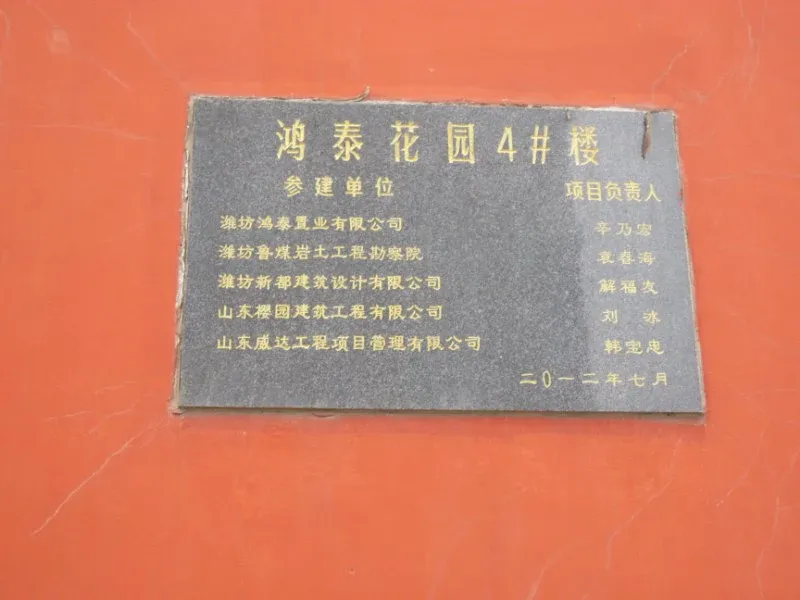 鸿泰花园4#楼
参建单位 项目负责人
潍坊鸿泰置业有限公司 辛乃宏
潍坊鲁煤岩土工程勘察院 袁春海
潍坊新都建筑设计有限公司 解福友
山东樱园建筑工程有限公司 刘冰
山东威达工程项目管理有限公司 韩宝忠
二〇一二年七月